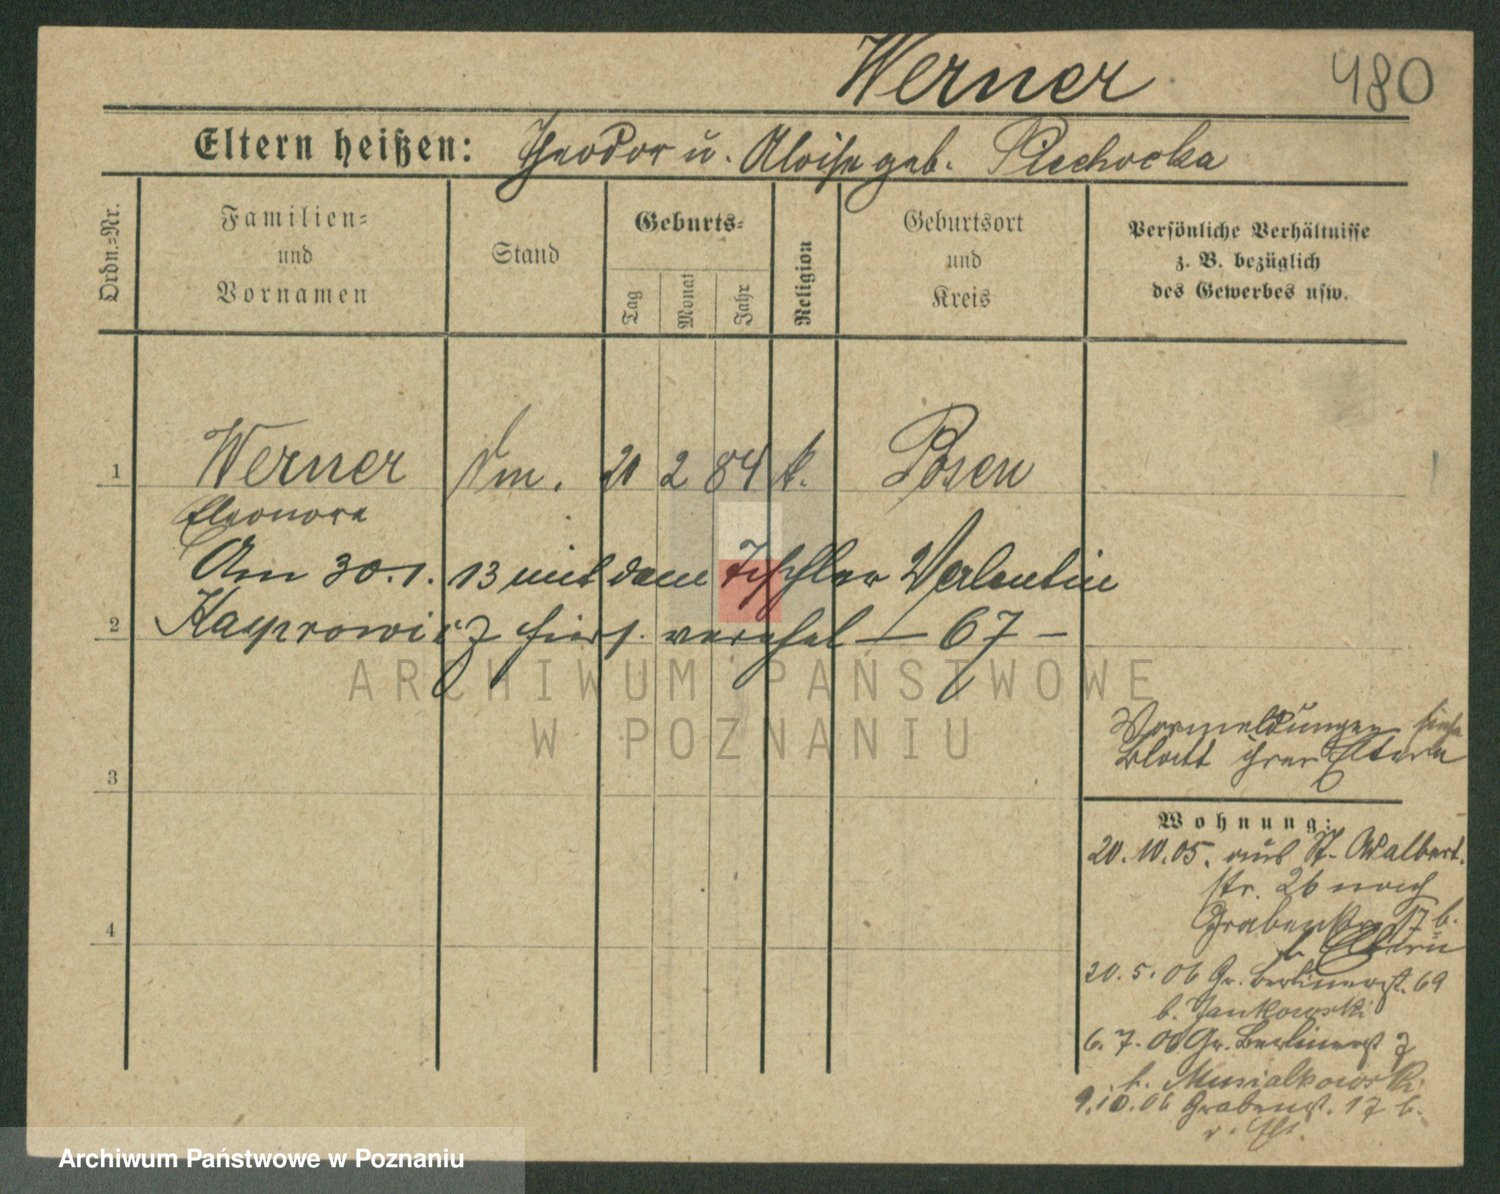 Werner 480
Eltern heißen: Theodor u. Aloise geb. Piechocka
Ordn.=Nr.
Familien=
und
Vornamen
Stand
Geburts=
Tag
Monat
Jahr
Religion
Geburtsort
und
Kreis
Persönliche Verhältnisse
z. B. bezüglich
des Gewerbes usw.
1 Werner 21 2 84 k. Posen
Eleonore
Am 30.1. 13 mit dem Tischler Valentin
2 Kasprowicz hiers. verehel — 67 —
ARCHIWUM PAŃSTWOWE
W POZNANIU
Vormeldungen siehe
Blatt ihrer Eltern
3
Wohnung:
20.10.05. aus St. Adalbert.
str. 26 nach
Grabenstr. 17 b.
b. Eltern
4
20.5.06 Gr. Berlinerst. 69
b. Jankowski
6.7.06 Gr. Berlinerst
b. Musialkowski
9.10.06 Grabenst. 17 b.
Archiwum Państwowe w Poznaniu